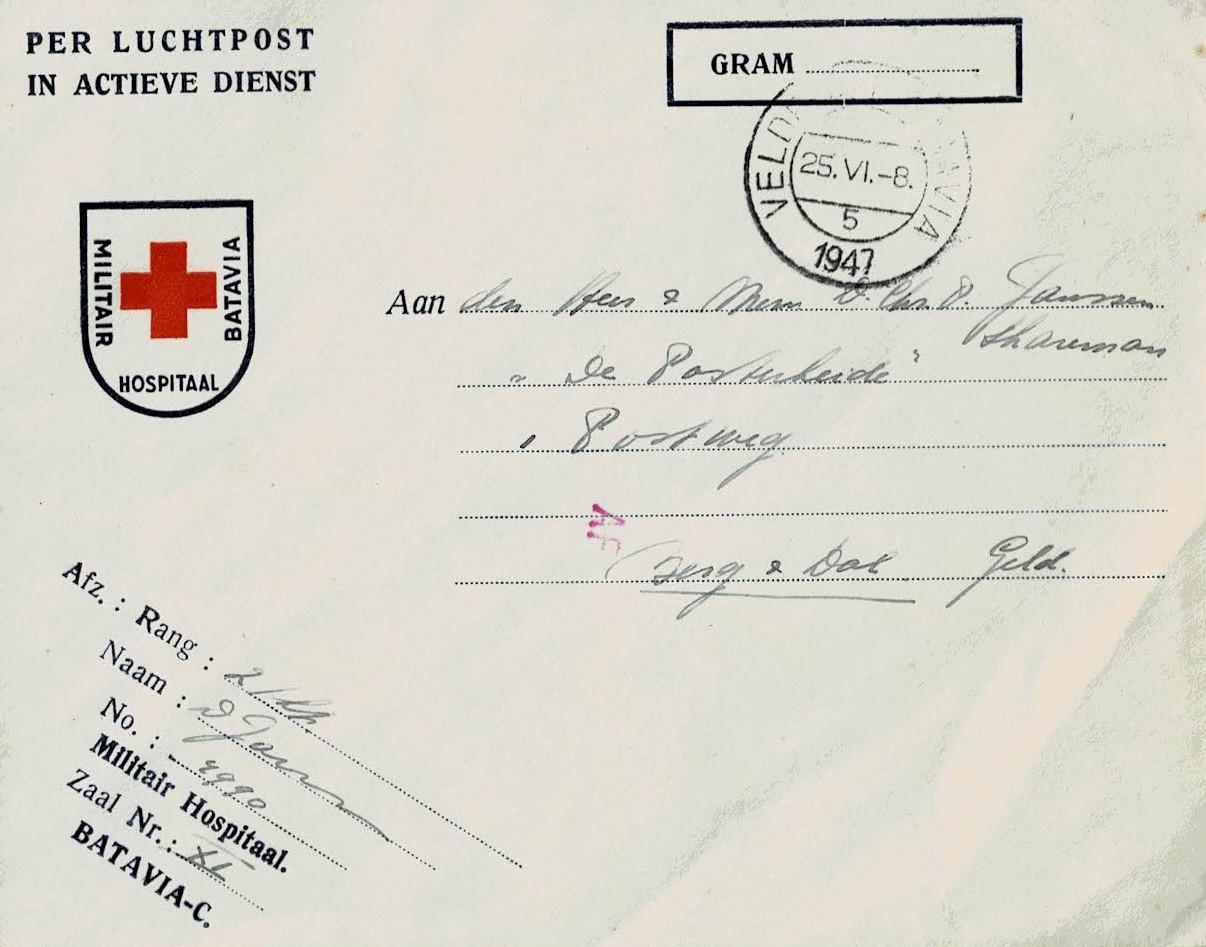 PER LUCHTPOST
IN ACTIEVE DIENST
GRAM
25.VI.-8.
5
1947
MILITAIR
BATAVIA
HOSPITAAL
Aan den Heer & Mevr Chr. P. Janssen
"De Posterheide"
Postweg
AF
Berg & Dal Geld.
Afz. : Rang :
Naam : D Janssen
No. :
Militair Hospitaal.
Zaal Nr.: XI
BATAVIA-C.